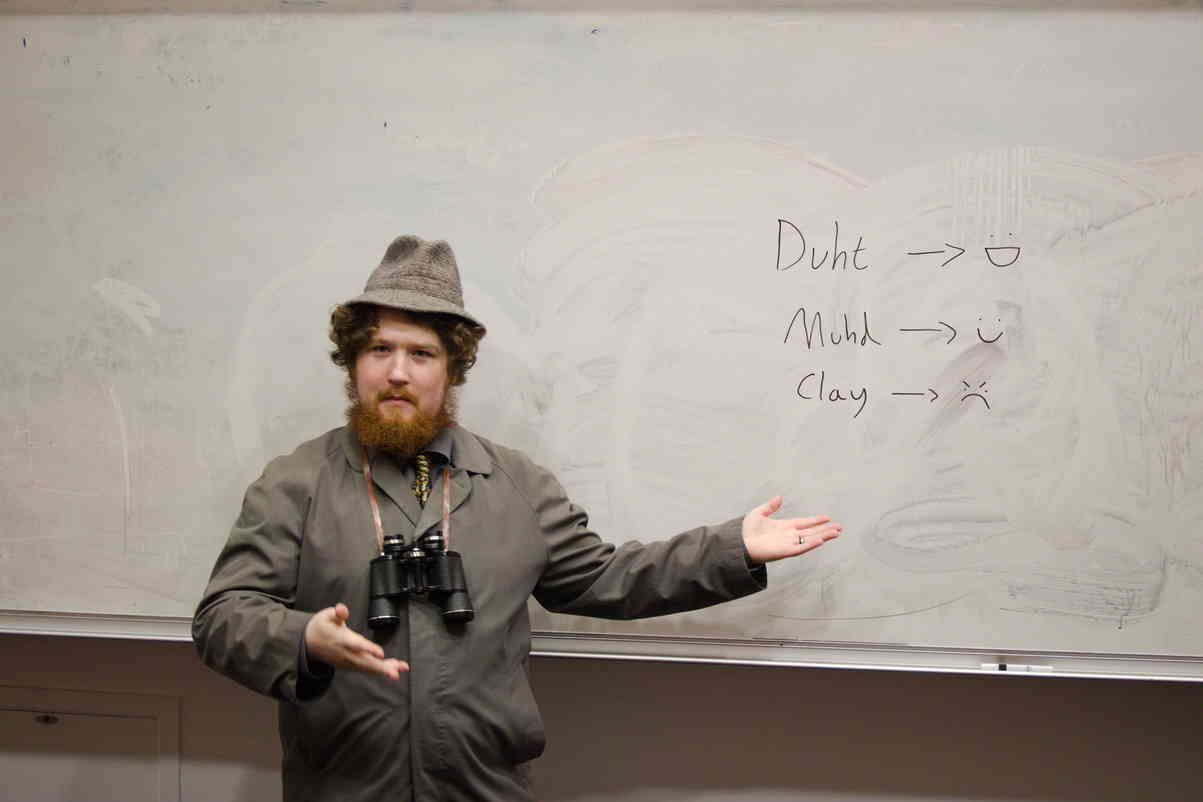 Duht → :D
Muhd → :)
Clay → >:(